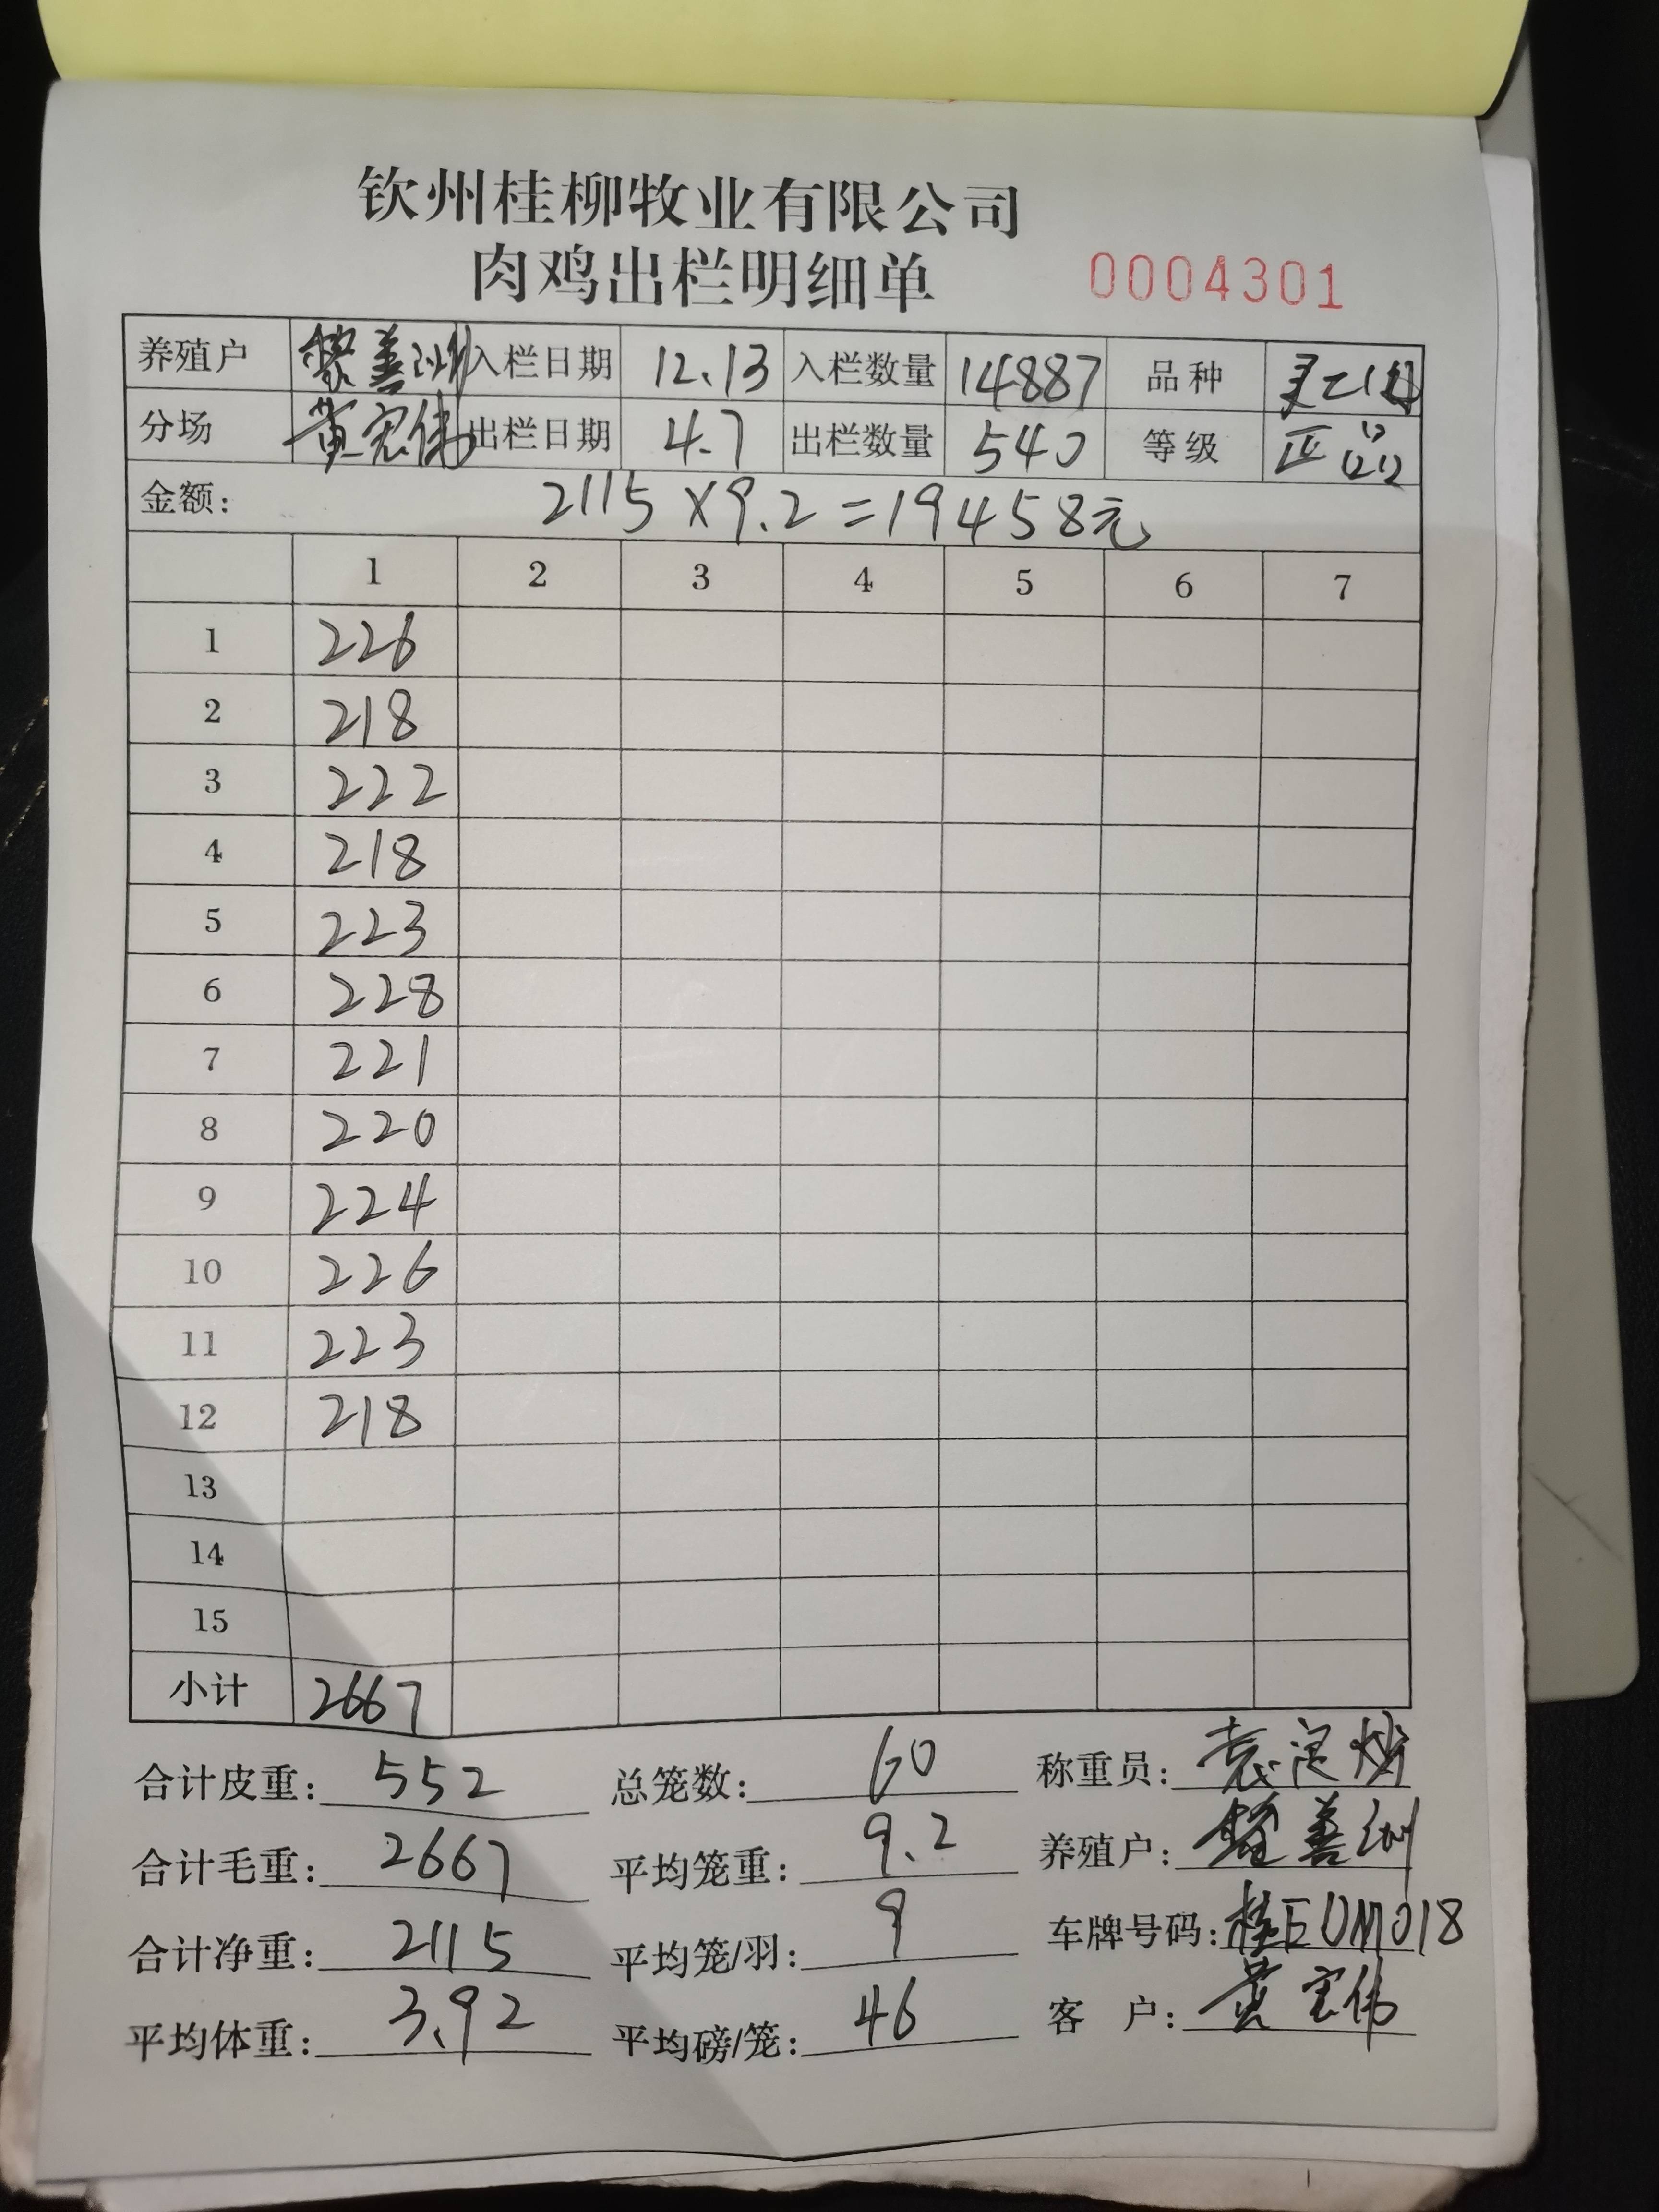 钦州桂柳牧业有限公司
肉鸡出栏明细单 0004301
养殖户 善 入栏日期 12.13 入栏数量 14887 品种
分场 黄宏伟 出栏日期 4.7 出栏数量 540 等级 正品
金额: 2115×9.2=19458元
1 2 3 4 5 6 7
1 226
2 218
3 222
4 218
5 223
6 228
7 221
8 220
9 224
10 226
11 223
12 218
13
14
15
小计 2667
合计皮重: 552 总笼数: 60 称重员: 袁
合计毛重: 2667 平均笼重: 9.2 养殖户: 善
合计净重: 2115 平均笼/羽: 9 车牌号码: 桂EUM018
平均体重: 3.92 平均磅/笼: 46 客 户: 黄宏伟